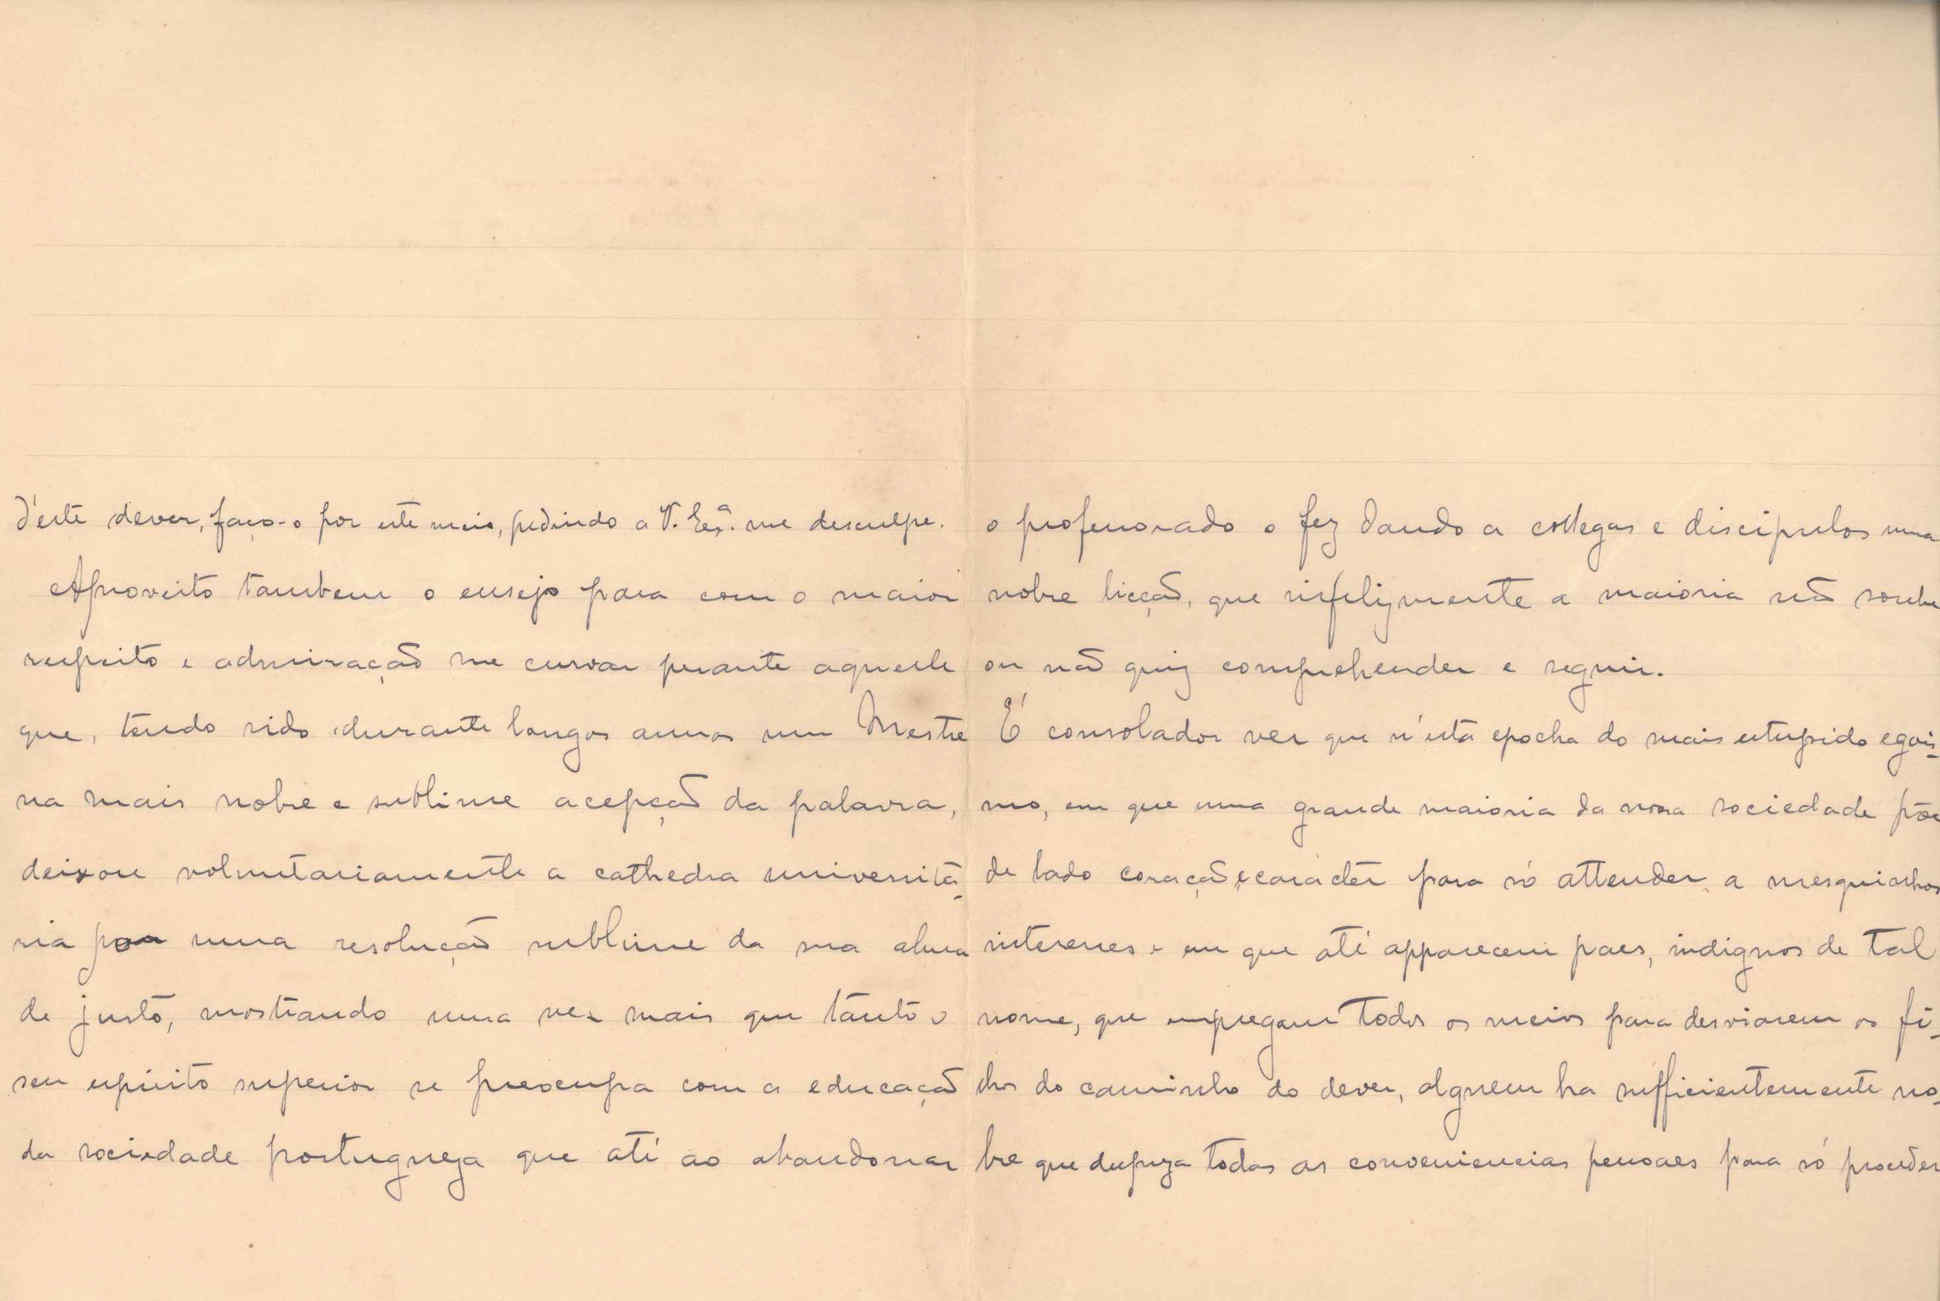 d'este dever, faço-o por este meio, pedindo a V. Exª. me desculpe.
Aproveito tambem o ensejo para com o maior
respeito e admiração me curvar perante aquelle
que, tendo sido durante longos annos um Mestre
na mais nobre e sublime acepção da palavra,
deixou voluntariamente a cathedra universitá-
ria por uma resolução sublime da sua alma
de justo, mostrando uma vez mais que tanto o
seu espirito superior se preocupa com a educação
da sociedade portugueza que até ao abandonar
o professorado o fez dando a collegas e discipulos uma
nobre licção, que infelizmente a maioria não soube
ou não quiz comprehender e seguir.
É consolador ver que n'esta epocha do mais estupido egois-
mo, em que uma grande maioria da nossa sociedade põe
de lado coração e caracter para só attender a mesquinhos
interesses e em que até apparecem paes, indignos de tal
nome, que empregam todos os meios para desviarem os fi-
lhos do caminho do dever, alguem ha sufficientemente no-
bre que despreza todas as conveniencias pessoaes para só proceder